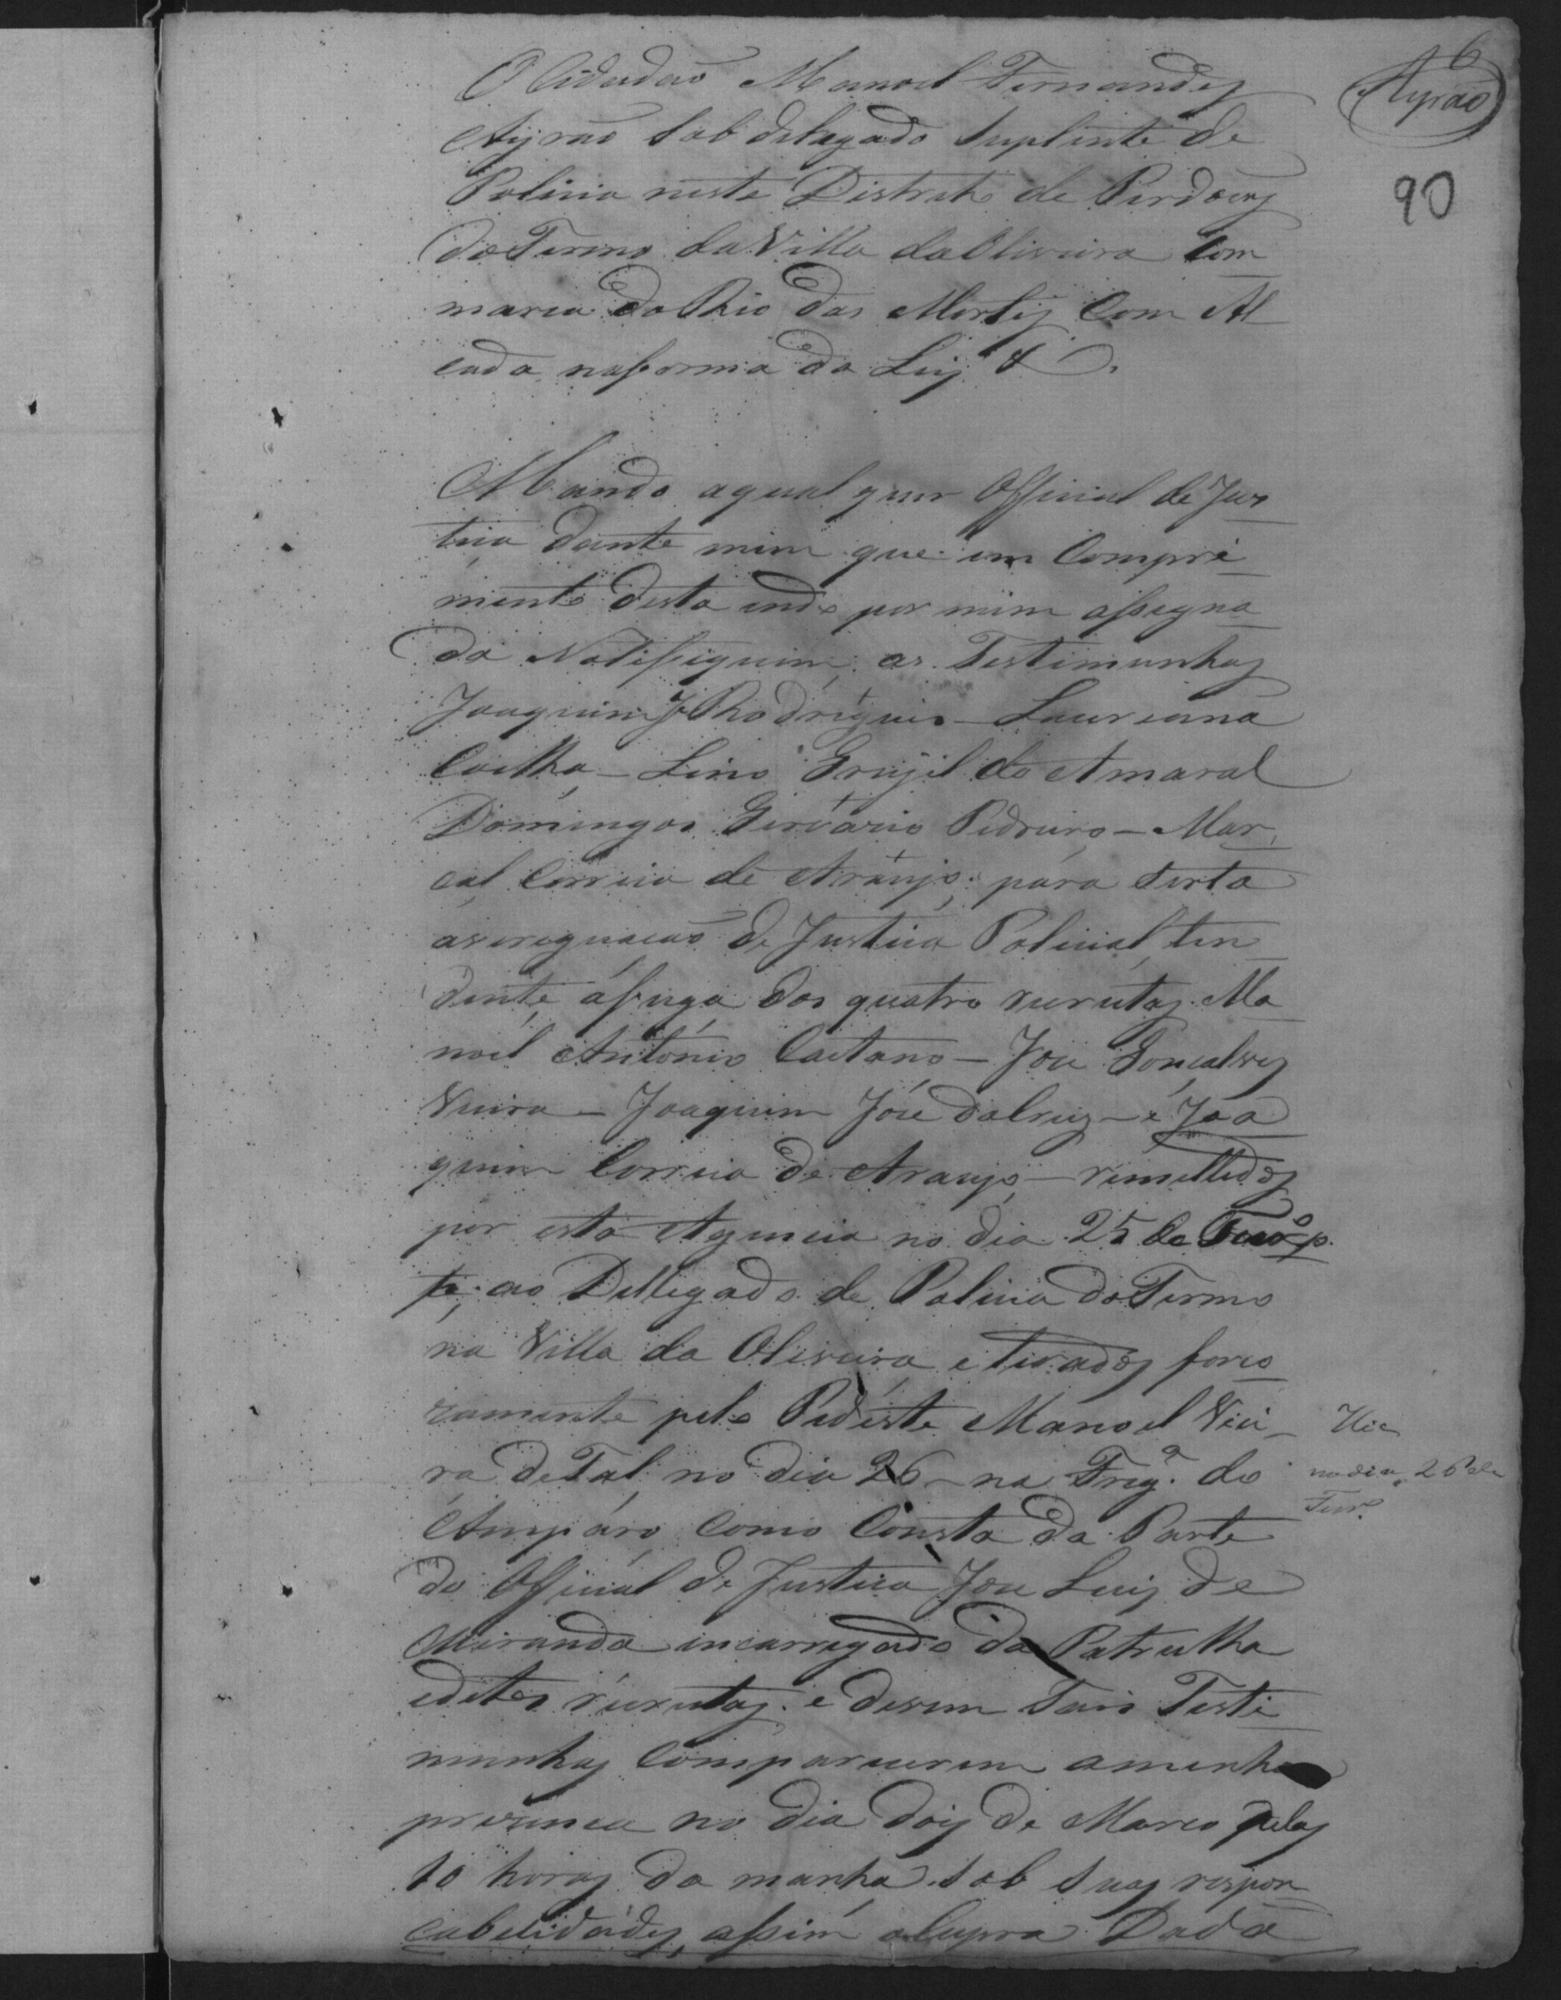 6
Ayrão
90
O Cidadão Manoel Fernandes
Ayrão Sob delagado Suplente de
Policia neste Districto de Perdoens
do Termo da Villa da Oliveira Com
marca do Rio das Mortes Com Al
cada na forma da Ley &
Mando aqual quer Official de Jus
tiça dante mim que em Compri
mento desta indo por mim assigna
da Notifiquem as Testimunhas
Joaquim Je Rodrigues – Laureana
Coelha – Lino Grugel do Amaral
Domingos Gervazio Pedreiro – Mar
cal Correia de Araujo; para serta
avereguacaõ de Justica Policial, ten
dente áfuga dos quatro recrutas. Ma
noel Antonio Caetano – Joze Goncalves
Vieira – Joaquim Joze da Cruz – e Joa
quim Correia de Araujo – remettidos
por esta Agencia no dia 25 de Fevrº p.
p. ao Dellegado de Policia do Termo
na Villa da Oliveira e tirados forco
zamente pelo Pedéste Manoel Viei
ra de Tal no dia 26 – na Freg.ª do
Amparo como Consta da Parte
do Official de Justica Joze Luis de
Miranda incarregado da Patrulha
editos recrutas. e devem tais Teste
munhas Comparecerem aminha
prezenca no dia dois de Marco pelas
10 horas da manha Sob suas respon
cabelidades, assim o Cupra Dada
no dia 26 de
Fevrº